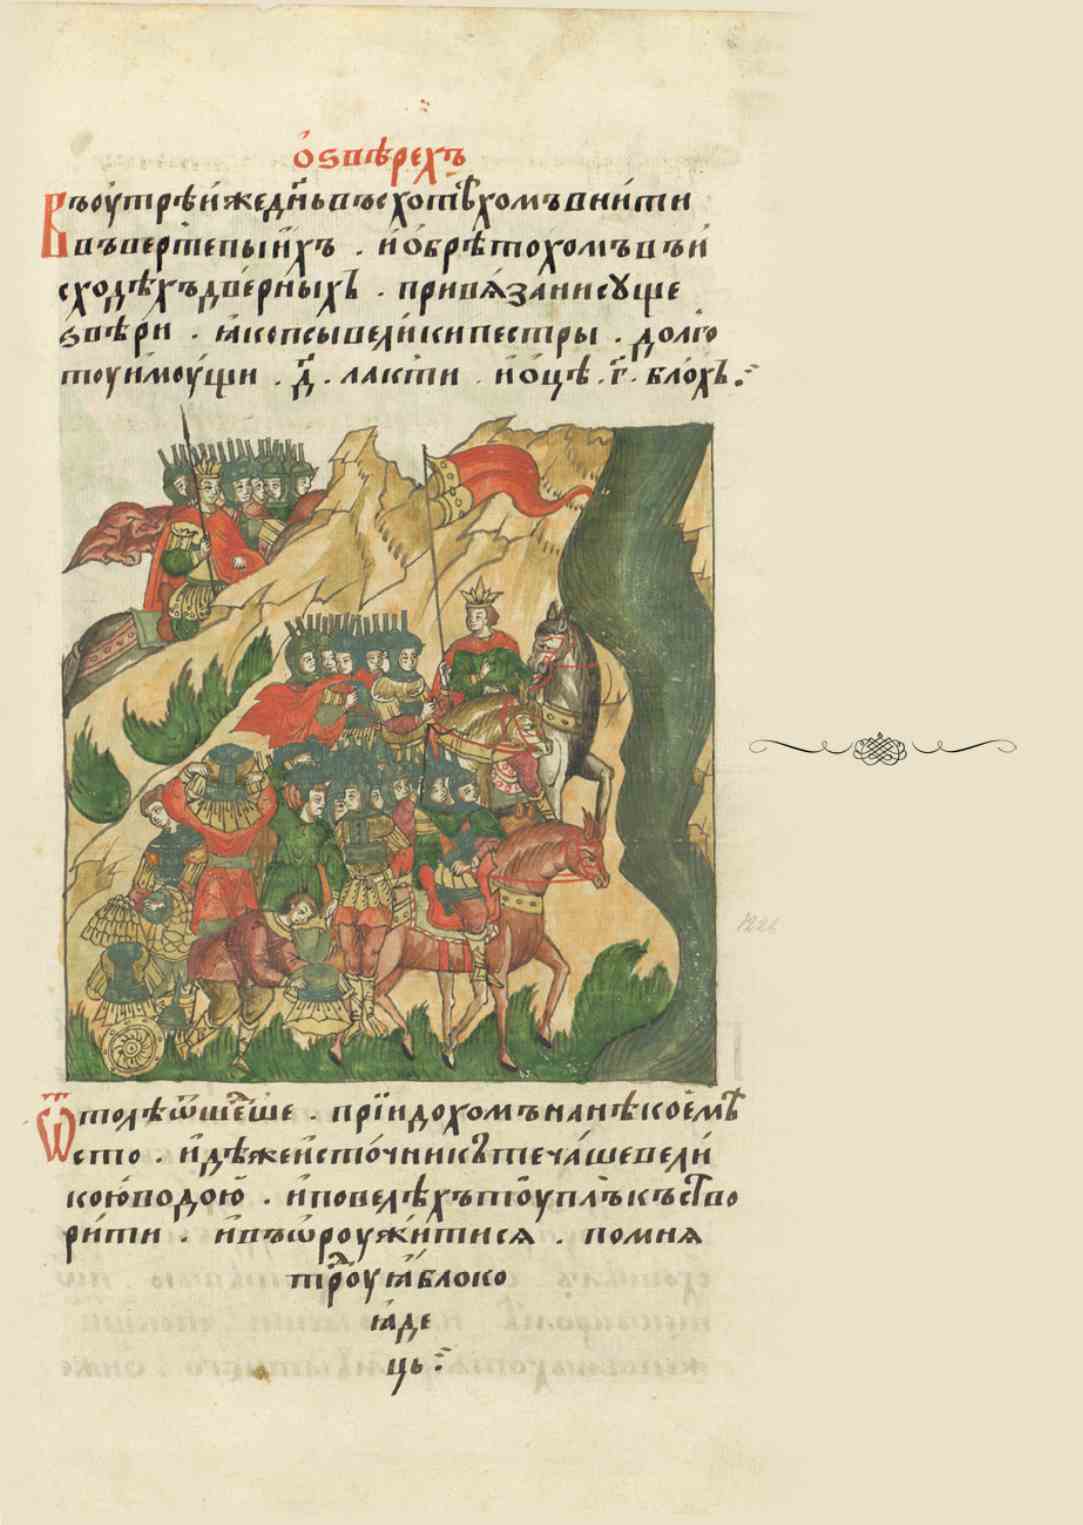 ѡ ѕвѣрехъ
Въ оутрѣи же дн҃ь въсхотѣхомъ внити
въ вертепы ихъ . и обрѣтохомъ въ и
сходѣхъ дверныхъ . привѧзани сꙋще
ѕвѣри . ꙗко пси велики пестры . долго
тоу имоущи . д҃ . лакти . и оцѣ . г҃ . блохъ
Ѿтолѣ ѿшедше . прїидохомъ на нѣкое мѣ
сто . идѣже источникъ течаше вели
кою водою . и повелѣхъ тоу плъкъ ство
рити . и въѡроужитисѧ . помнѧ
троу ꙗблоко
ꙗде
ць